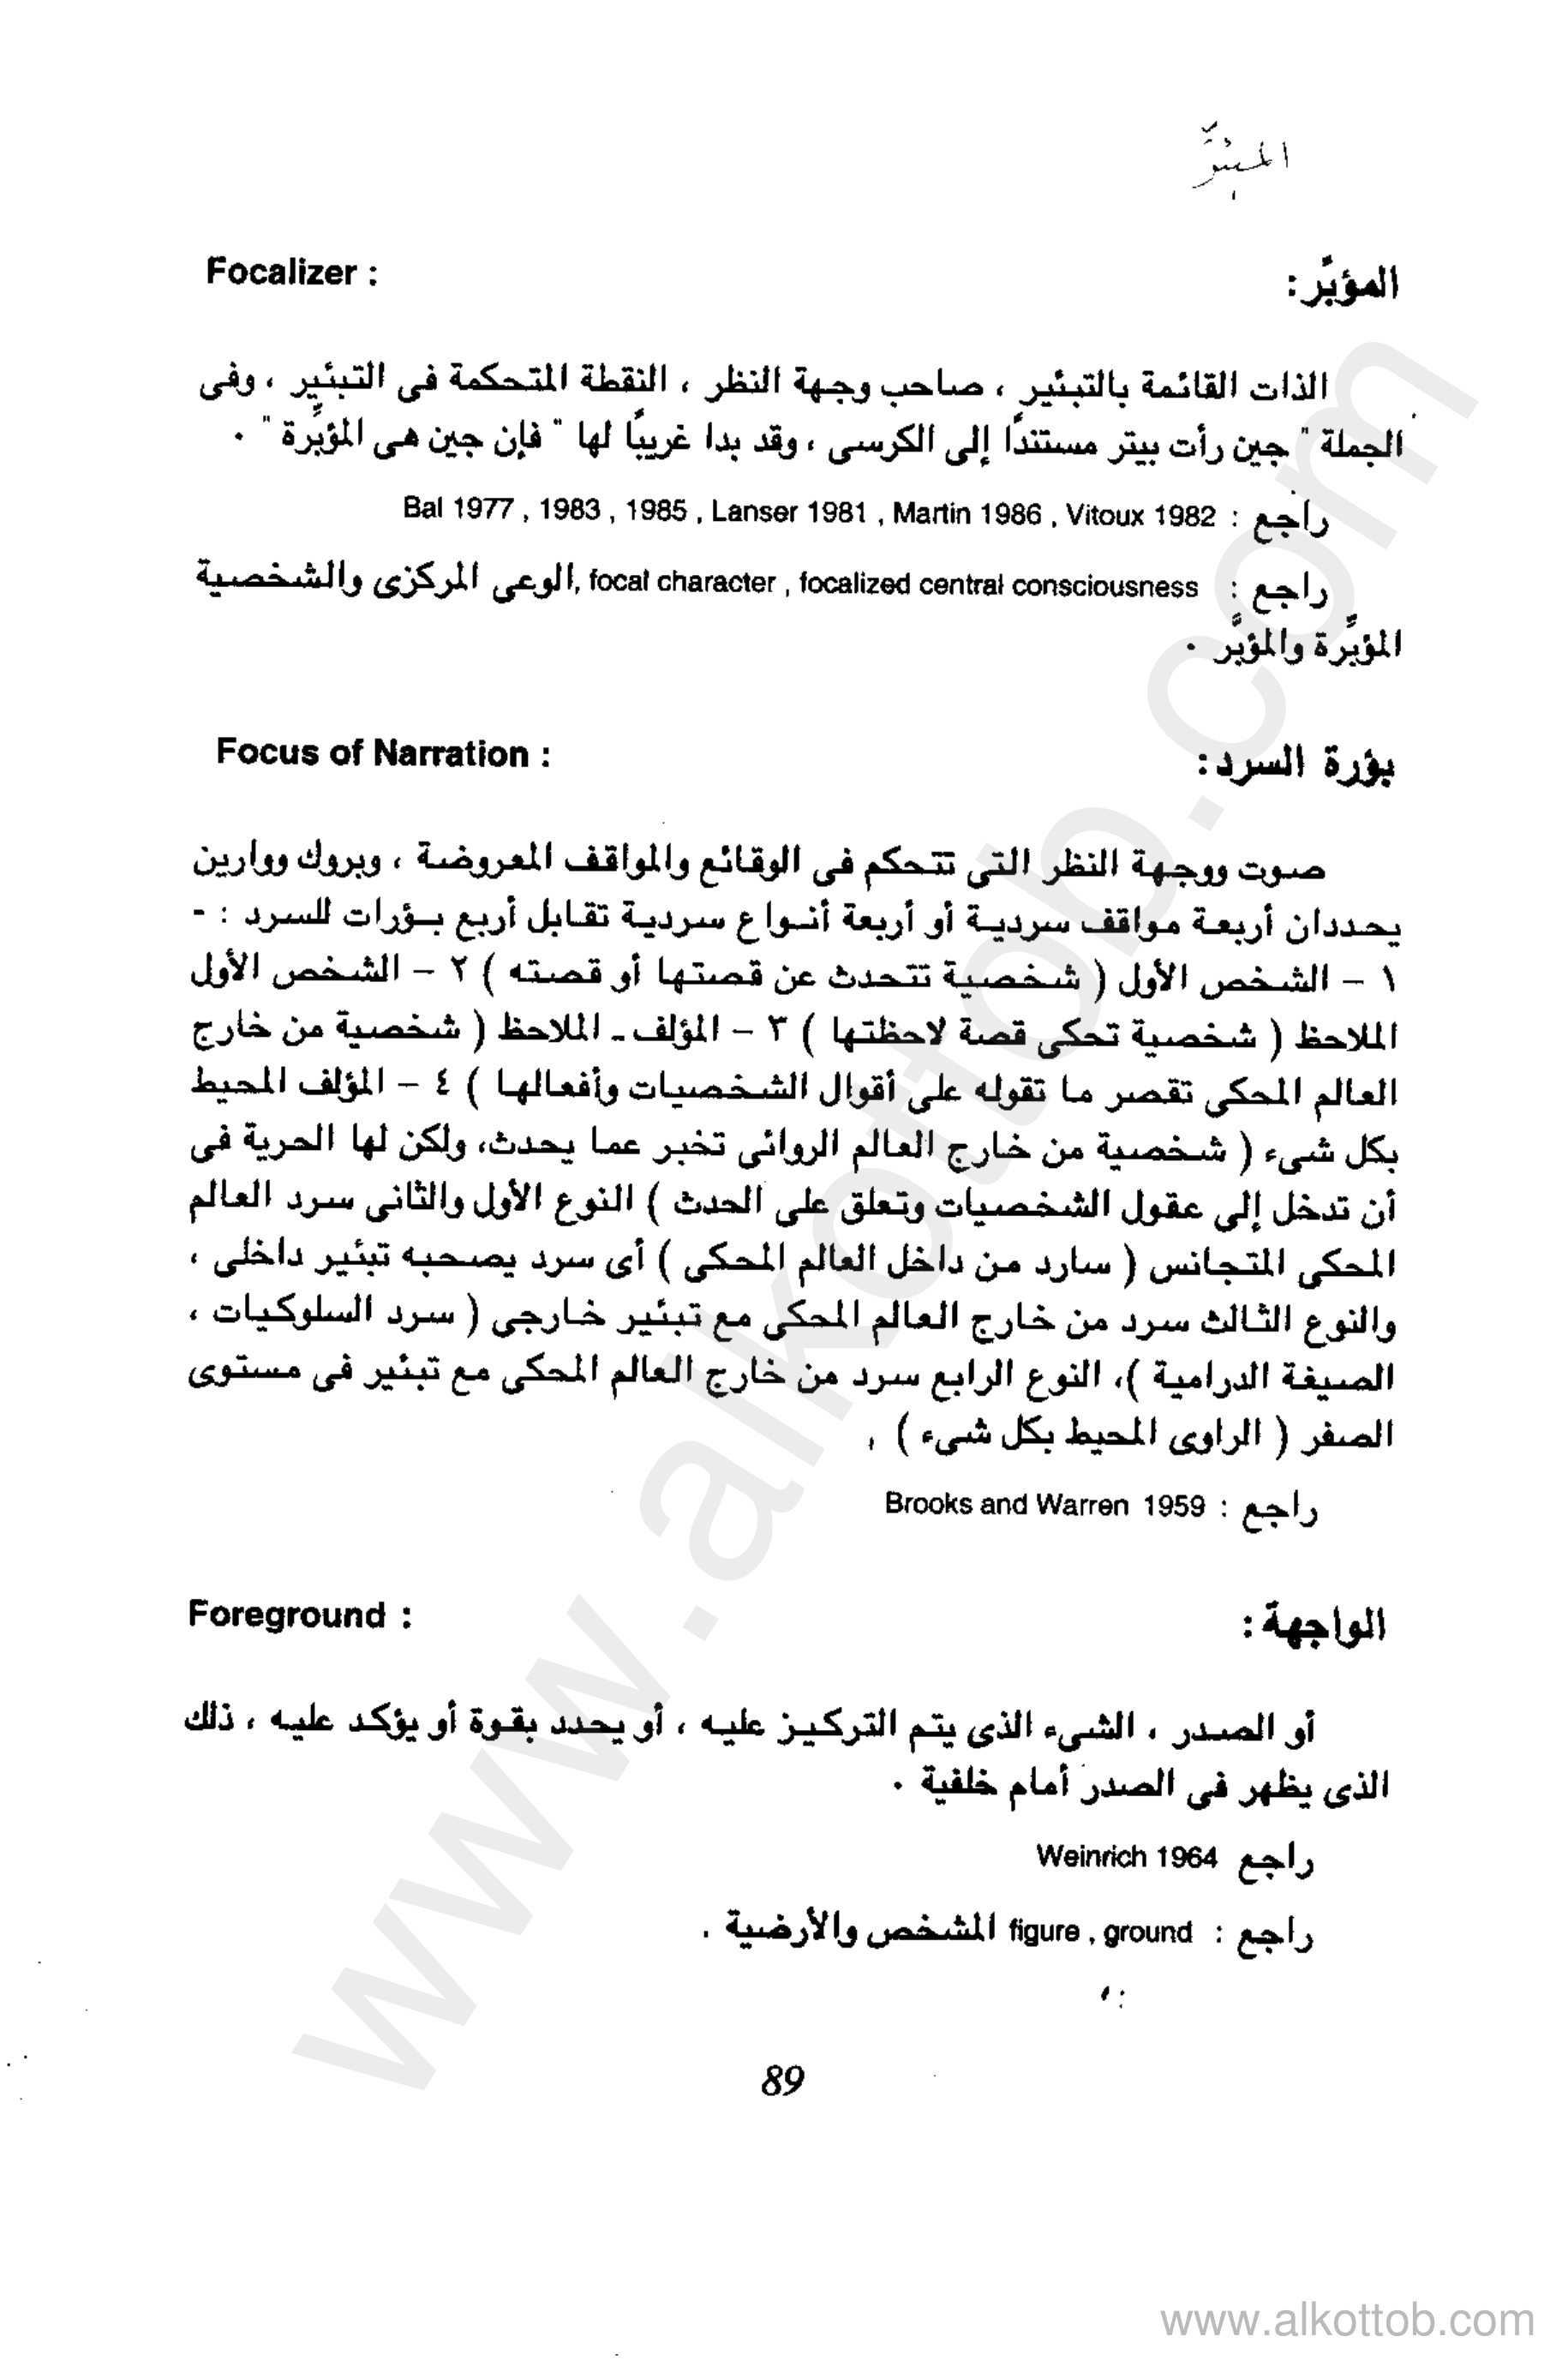 المبئِّر
المؤبِّر: Focalizer :
الذات القائمة بالتبئير ، صاحب وجهة النظر ، النقطة المتحكمة فى التبئير ، وفى
الجملة " جين رأت بيتر مستنداً إلى الكرسى ، وقد بدا غريبًا لها " فإن جين هى المؤبِّرة " .
راجع : Bal 1977 , 1983 , 1985 , Lanser 1981 , Martin 1986 , Vitoux 1982
راجع : focal character , focalized central consciousness ,الوعى المركزى والشخصية
المؤبِّرة والمؤبَّر .
بؤرة السرد: Focus of Narration :
صوت ووجهة النظر التى تتحكم فى الوقائع والمواقف المعروضة ، وبروك ووارين
يحددان أربعة مواقف سردية أو أربعة أنواع سردية تقابل أربع بؤرات للسرد : -
١ - الشخص الأول ( شخصية تتحدث عن قصتها أو قصته ) ٢ - الشخص الأول
الملاحظ ( شخصية تحكى قصة لاحظتها ) ٣ - المؤلف - الملاحظ ( شخصية من خارج
العالم المحكى تقصر ما تقوله على أقوال الشخصيات وأفعالها ) ٤ - المؤلف المحيط
بكل شىء ( شخصية من خارج العالم الروائى تخبر عما يحدث، ولكن لها الحرية فى
أن تدخل إلى عقول الشخصيات وتعلق على الحدث ) النوع الأول والثانى سرد العالم
المحكى المتجانس ( سارد من داخل العالم المحكى ) أى سرد يصحبه تبئير داخلى ،
والنوع الثالث سرد من خارج العالم المحكى مع تبئير خارجى ( سرد السلوكيات ،
الصيغة الدرامية )، النوع الرابع سرد من خارج العالم المحكى مع تبئير فى مستوى
الصفر ( الراوى المحيط بكل شىء ) ,
راجع : Brooks and Warren 1959
الواجهة: Foreground :
أو الصدر ، الشىء الذى يتم التركيز عليه ، أو يحدد بقوة أو يؤكد عليه ، ذلك
الذى يظهر فى الصدر أمام خلفية .
راجع Weinrich 1964
راجع : figure , ground المشخص والأرضية .
89
www.alkottob.com
www.alkottob.com